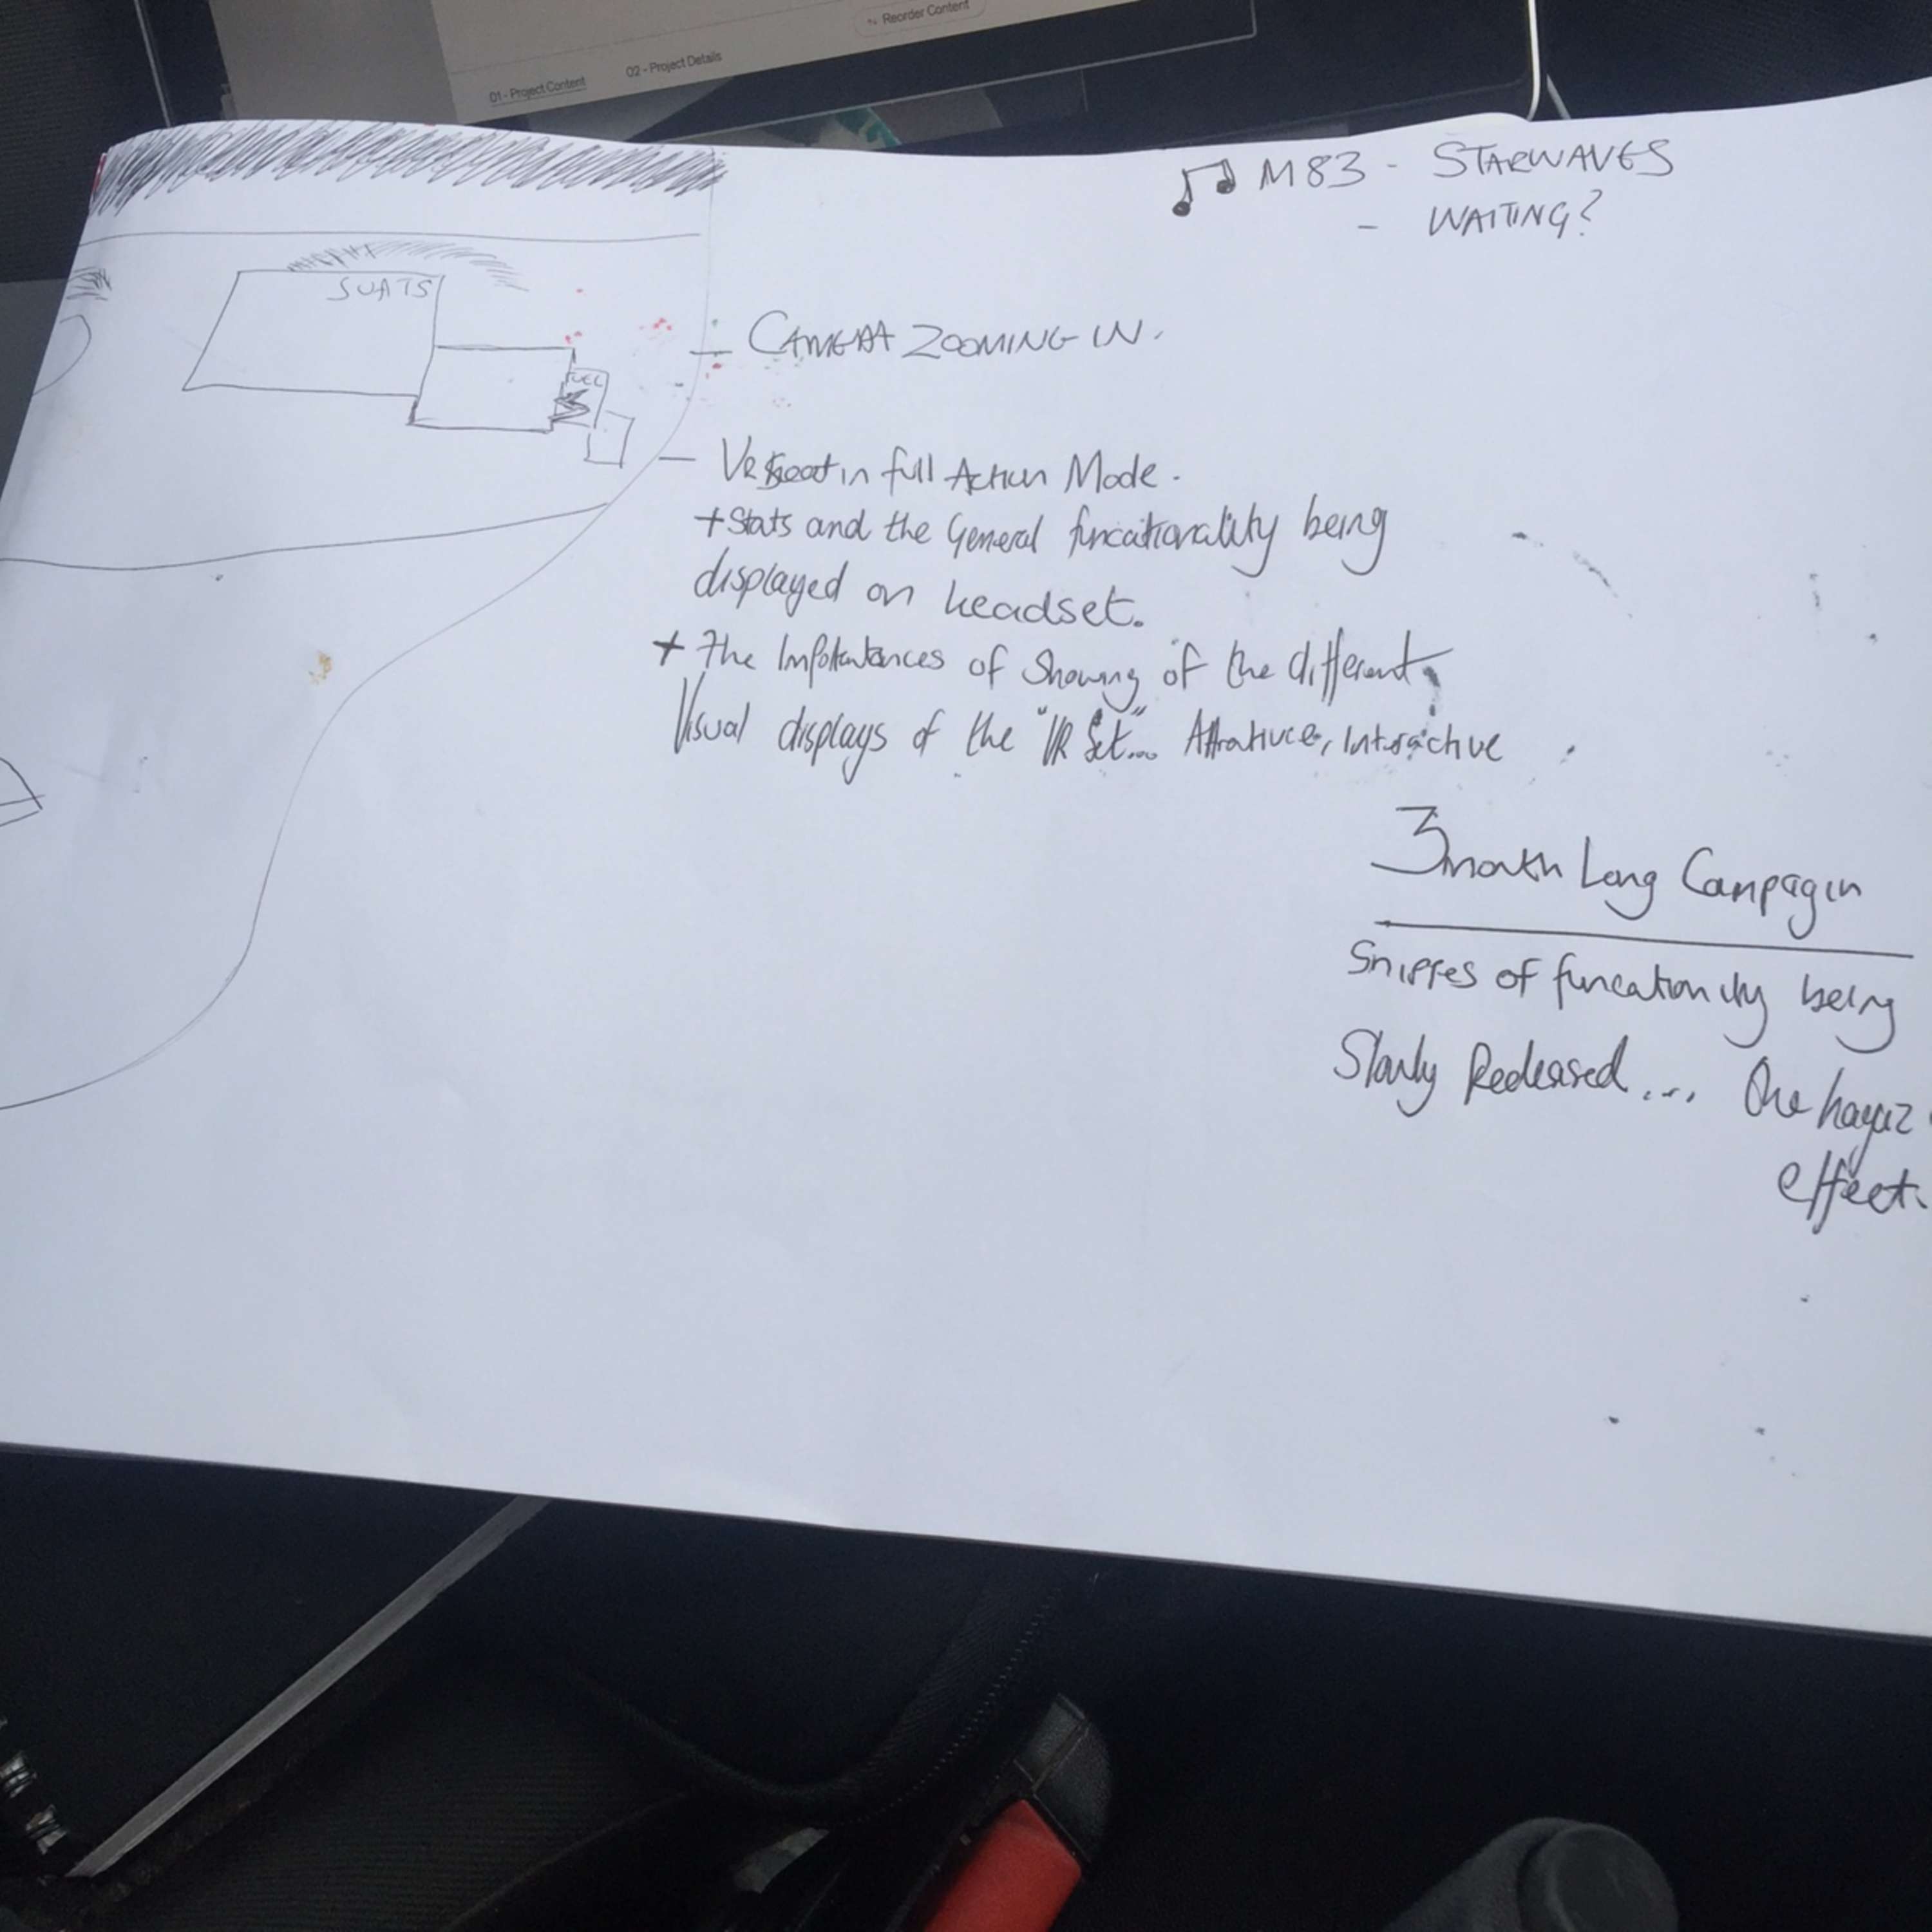 Reorder Content
01 - Project Content
02 - Project Details
M83 - STARWAVES
- WAITING?
FUEL
- CAMERA ZOOMING IN.
- VR in full Action Mode.
+ Stats and the General funcationality being
displayed on headset.
+ The of Showing of the different
Visual displays of the "VR Set"... Interactive
3 month Long Campagin
of being
Slowly Realeased.... One
effect.